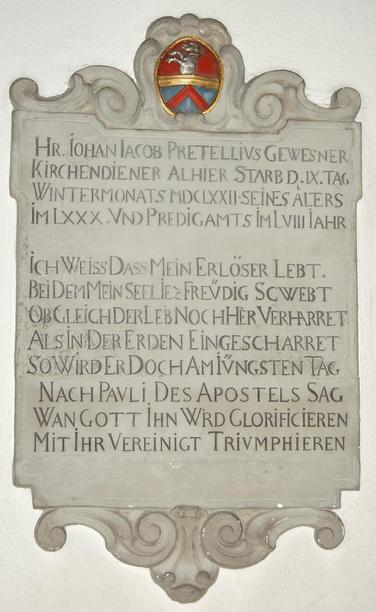 HR. IOHAN IACOB PRETELLIVS GEWESNER
KIRCHENDIENER ALHIER STARB D. IX. TAG
WINTERMONATS MDCLXXII. SEINES ALTERS
IM LXXX. VND PREDIGAMTS IM LVIII IAHR
ICH WEISS DASS MEIN ERLÖSER LEBT.
BEI DEM MEIN SEEL IEZ FREÜDIG SCWEBT
OB GLEICH DER LEB NOCH HER VERHARRET
ALS IN DER ERDEN EINGESCHARRET
SO WIRD ER DOCH AM IÜNGSTEN TAG
NACH PAVLI DES APOSTELS SAG
WAN GOTT IHN WIRD GLORIFICIEREN
MIT IHR VEREINIGT TRIVMPHIEREN